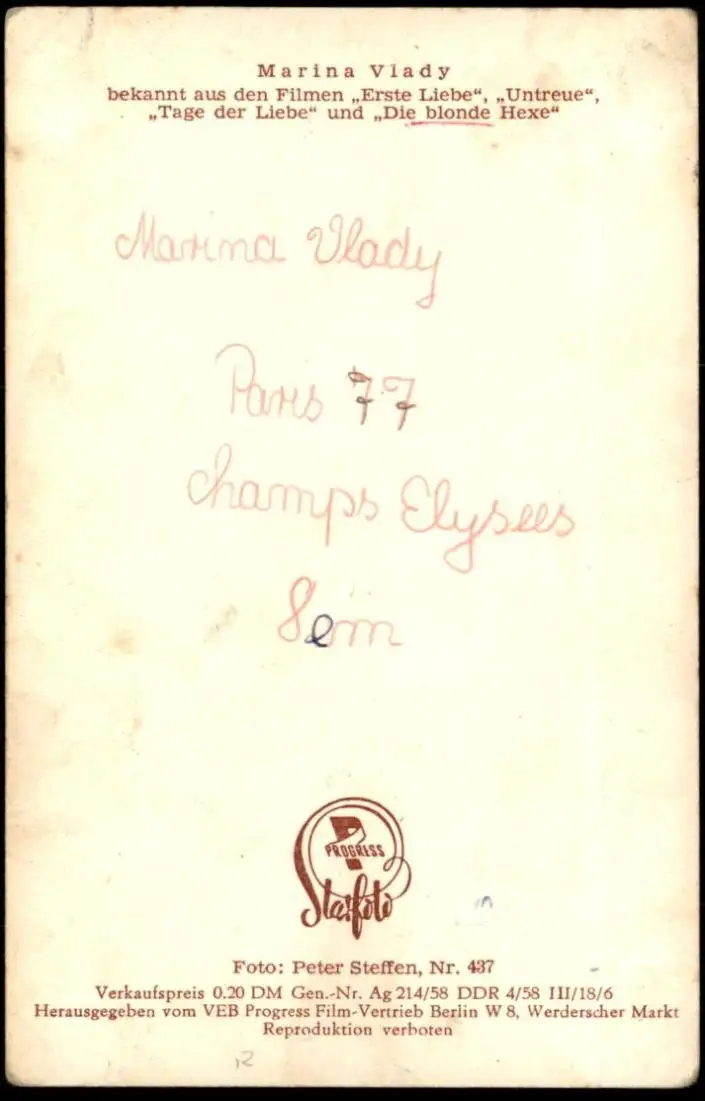 Marina Vlady
bekannt aus den Filmen „Erste Liebe“, „Untreue“,
„Tage der Liebe“ und „Die blonde Hexe“
Marina Vlady
Paris 77
Champs Elysees
8em
PROGRESS
Starfoto
Foto: Peter Steffen, Nr. 437
Verkaufspreis 0.20 DM Gen.-Nr. Ag 214/58 DDR 4/58 III/18/6
Herausgegeben vom VEB Progress Film-Vertrieb Berlin W 8, Werderscher Markt
Reproduktion verboten